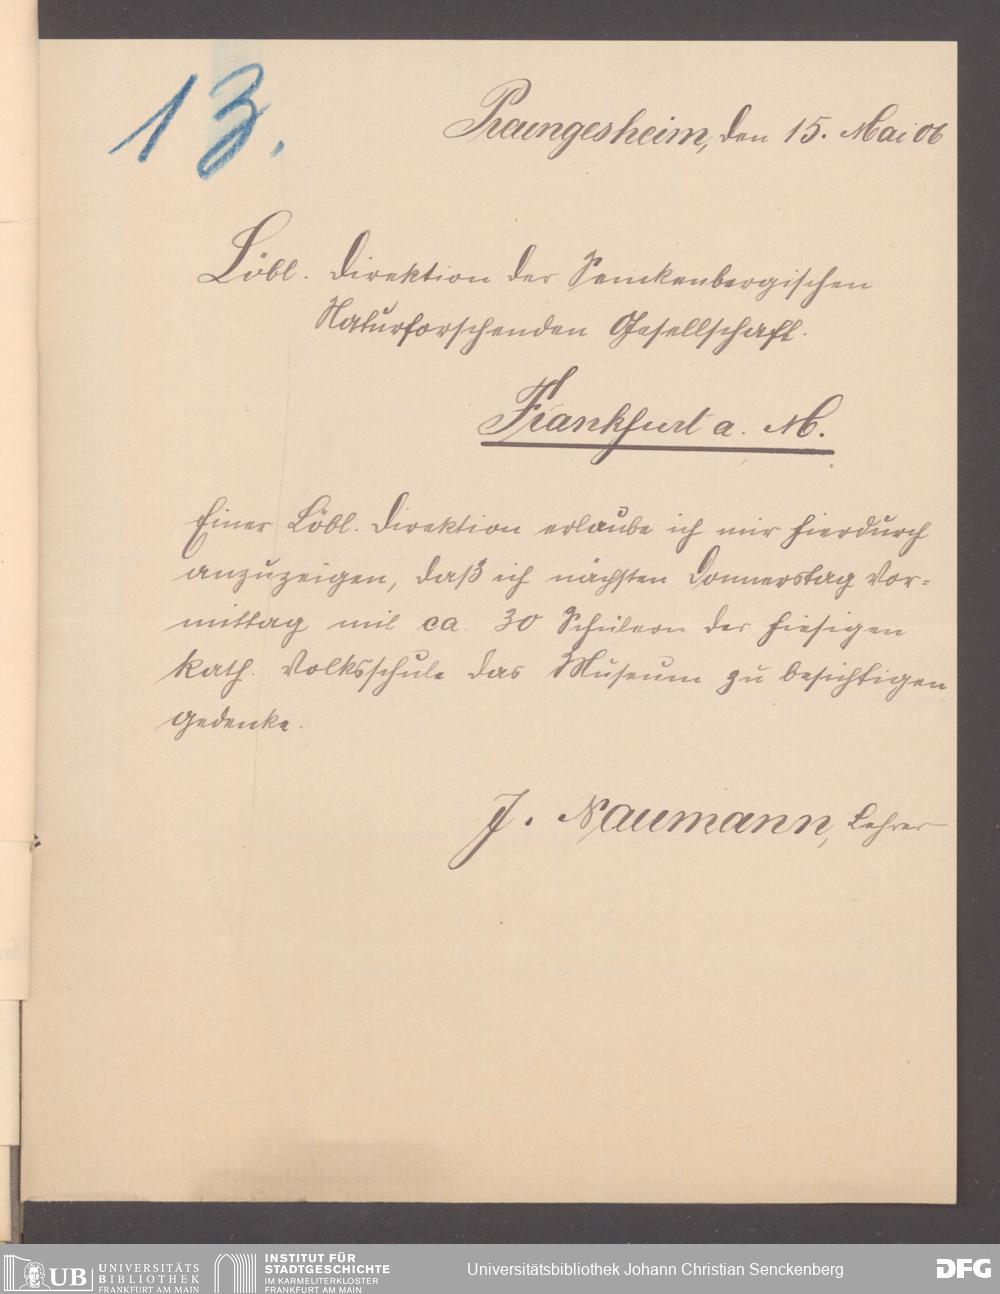 13.
Preungesheim, den 15. Mai 06
Löbl. Direktion der Senckenbergischen
Naturforschenden Gesellschaft.
Frankfurt a. M.
Einer Löbl. Direktion erlaube ich mir hierdurch
anzuzeigen, daß ich nächsten Donnerstag Vor=
mittag mit ca. 30 Schülern der hiesigen
kath. Volksschule das Museum zu besichtigen
gedenke.
J. Naumann, Lehrer
UB UNIVERSITÄTS
BIBLIOTHEK
FRANKFURT AM MAIN
INSTITUT FÜR
STADTGESCHICHTE
IM KARMELITERKLOSTER
FRANKFURT AM MAIN
Universitätsbibliothek Johann Christian Senckenberg
DFG